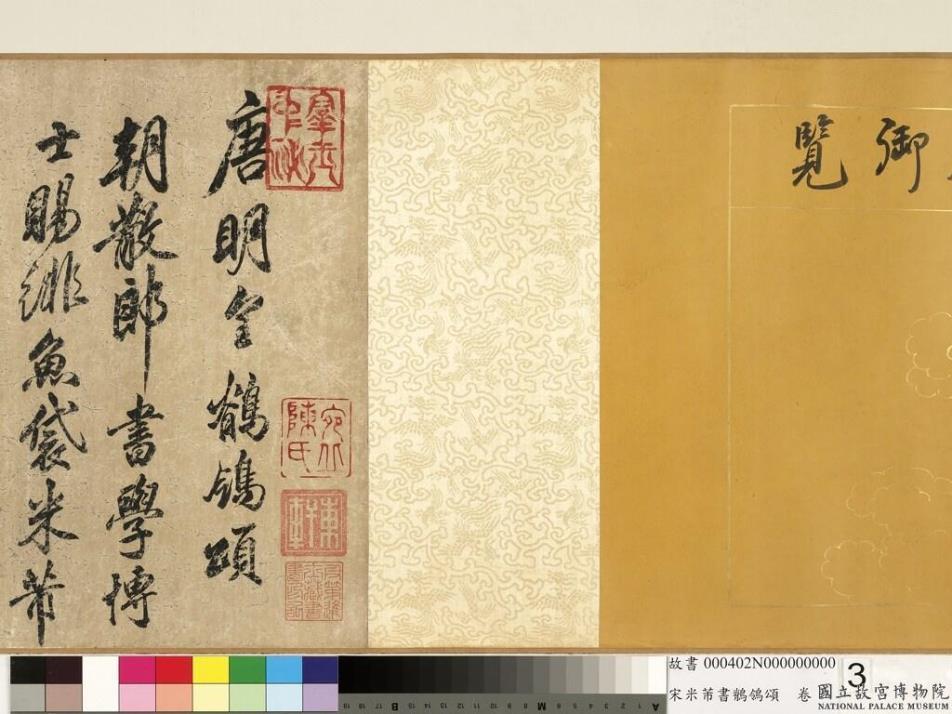 御覽
唐明皇鶺鴒頌
朝散郎書學博
士賜緋魚袋米芾
羣玉中祕
宛丘陳氏
東軒
故書 000402N000000000
3
宋米芾書鶺鴒頌 卷
國立故宮博物院
NATIONAL PALACE MUSEUM
B
M
A